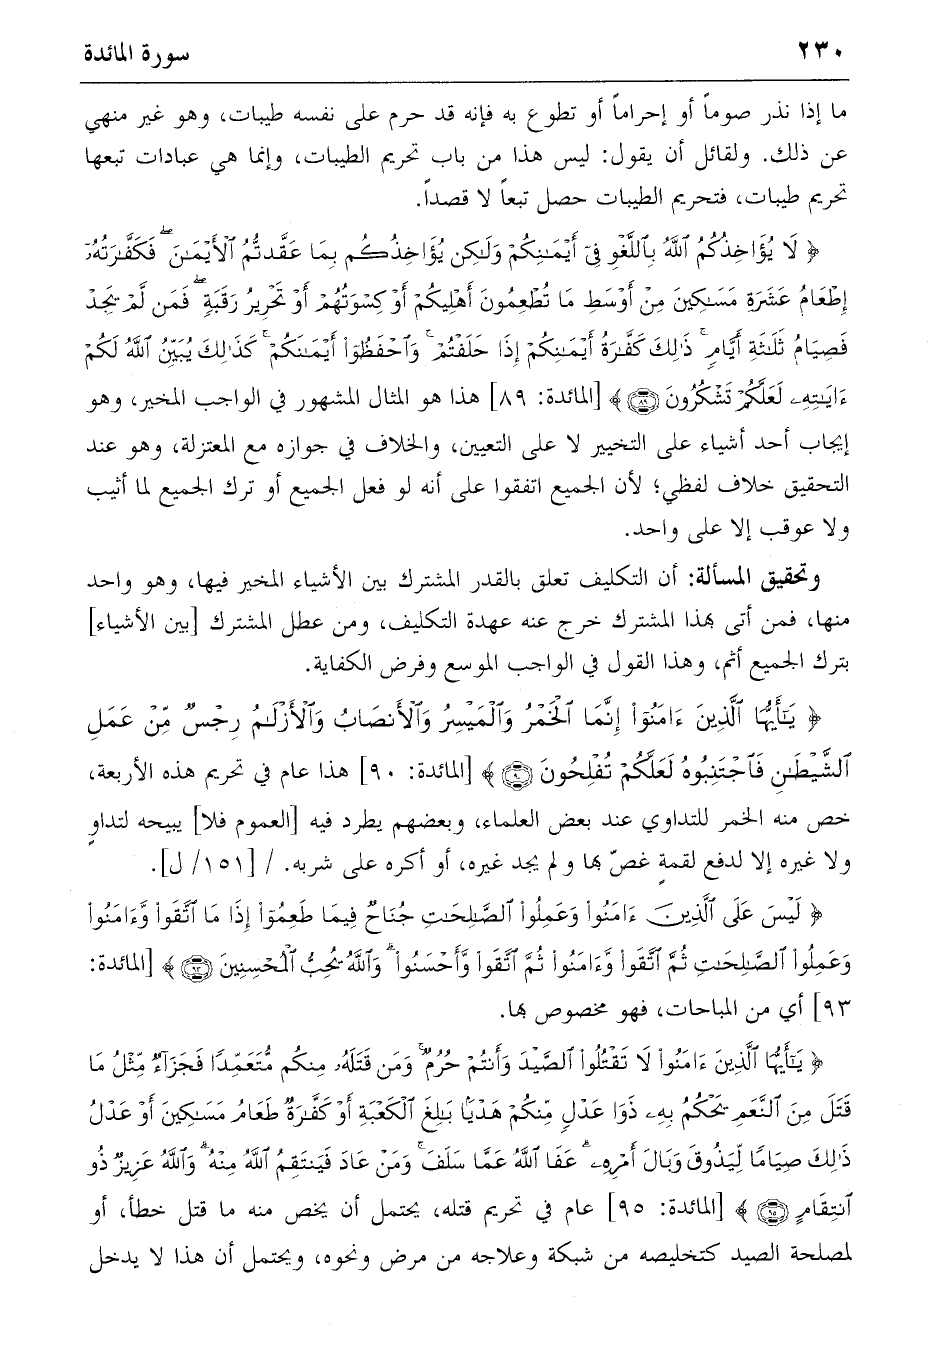 ٢٣٠ سورة المائدة
ما إذا نذر صوماً أو إحراماً أو تطوع به فإنه قد حرم على نفسه طيبات، وهو غير منهي
عن ذلك. ولقائل أن يقول: ليس هذا من باب تحريم الطيبات، وإنما هي عبادات تبعها
تحريم طيبات، فتحريم الطيبات حصل تبعاً لا قصداً.
﴿ لَا يُؤَاخِذُكُمُ ٱللَّهُ بِٱللَّغْوِ فِىٓ أَيْمَـٰنِكُمْ وَلَـٰكِن يُؤَاخِذُكُم بِمَا عَقَّدتُّمُ ٱلْأَيْمَـٰنَ ۖ فَكَفَّـٰرَتُهُۥٓ
إِطْعَامُ عَشَرَةِ مَسَـٰكِينَ مِنْ أَوْسَطِ مَا تُطْعِمُونَ أَهْلِيكُمْ أَوْ كِسْوَتُهُمْ أَوْ تَحْرِيرُ رَقَبَةٍ ۖ فَمَن لَّمْ يَجِدْ
فَصِيَامُ ثَلَـٰثَةِ أَيَّامٍ ۚ ذَٰلِكَ كَفَّـٰرَةُ أَيْمَـٰنِكُمْ إِذَا حَلَفْتُمْ ۚ وَٱحْفَظُوٓا۟ أَيْمَـٰنَكُمْ ۚ كَذَٰلِكَ يُبَيِّنُ ٱللَّهُ لَكُمْ
ءَايَـٰتِهِۦ لَعَلَّكُمْ تَشْكُرُونَ ٨٩ ﴾ [المائدة: ٨٩] هذا هو المثال المشهور في الواجب المخير، وهو
إيجاب أحد أشياء على التخيير لا على التعيين، والخلاف في جوازه مع المعتزلة، وهو عند
التحقيق خلاف لفظي؛ لأن الجميع اتفقوا على أنه لو فعل الجميع أو ترك الجميع لما أثيب
ولا عوقب إلا على واحد.
وتحقيق المسألة: أن التكليف تعلق بالقدر المشترك بين الأشياء المخير فيها، وهو واحد
منها، فمن أتى بهذا المشترك خرج عنه عهدة التكليف، ومن عطل المشترك [بين الأشياء]
بترك الجميع أثم، وهذا القول في الواجب الموسع وفرض الكفاية.
﴿ يَـٰٓأَيُّهَا ٱلَّذِينَ ءَامَنُوٓا۟ إِنَّمَا ٱلْخَمْرُ وَٱلْمَيْسِرُ وَٱلْأَنصَابُ وَٱلْأَزْلَـٰمُ رِجْسٌ مِّنْ عَمَلِ
ٱلشَّيْطَـٰنِ فَٱجْتَنِبُوهُ لَعَلَّكُمْ تُفْلِحُونَ ٩٠ ﴾ [المائدة: ٩٠] هذا عام في تحريم هذه الأربعة،
خص منه الخمر للتداوي عند بعض العلماء، وبعضهم يطرد فيه [العموم فلا] يبيحه لتداوٍ
ولا غيره إلا لدفع لقمةٍ غصّ بها و لم يجد غيره، أو أكره على شربه. / [١٥١/ ل].
﴿ لَيْسَ عَلَى ٱلَّذِينَ ءَامَنُوا۟ وَعَمِلُوا۟ ٱلصَّـٰلِحَـٰتِ جُنَاحٌ فِيمَا طَعِمُوٓا۟ إِذَا مَا ٱتَّقَوا۟ وَّءَامَنُوا۟
وَعَمِلُوا۟ ٱلصَّـٰلِحَـٰتِ ثُمَّ ٱتَّقَوا۟ وَّءَامَنُوا۟ ثُمَّ ٱتَّقَوا۟ وَّأَحْسَنُوا۟ ۗ وَٱللَّهُ يُحِبُّ ٱلْمُحْسِنِينَ ٩٣ ﴾ [المائدة:
٩٣] أي من المباحات، فهو مخصوص بها.
﴿ يَـٰٓأَيُّهَا ٱلَّذِينَ ءَامَنُوا۟ لَا تَقْتُلُوا۟ ٱلصَّيْدَ وَأَنتُمْ حُرُمٌ ۚ وَمَن قَتَلَهُۥ مِنكُم مُّتَعَمِّدًا فَجَزَآءٌ مِّثْلُ مَا
قَتَلَ مِنَ ٱلنَّعَمِ يَحْكُمُ بِهِۦ ذَوَا عَدْلٍ مِّنكُمْ هَدْيًۢا بَـٰلِغَ ٱلْكَعْبَةِ أَوْ كَفَّـٰرَةٌ طَعَامُ مَسَـٰكِينَ أَوْ عَدْلُ
ذَٰلِكَ صِيَامًا لِّيَذُوقَ وَبَالَ أَمْرِهِۦ ۗ عَفَا ٱللَّهُ عَمَّا سَلَفَ ۚ وَمَنْ عَادَ فَيَنتَقِمُ ٱللَّهُ مِنْهُ ۗ وَٱللَّهُ عَزِيزٌ ذُو
ٱنتِقَامٍ ٩٥ ﴾ [المائدة: ٩٥] عام في تحريم قتله، يحتمل أن يخص منه ما قتل خطأ، أو
لمصلحة الصيد كتخليصه من شبكة وعلاجه من مرض ونحوه، ويحتمل أن هذا لا يدخل